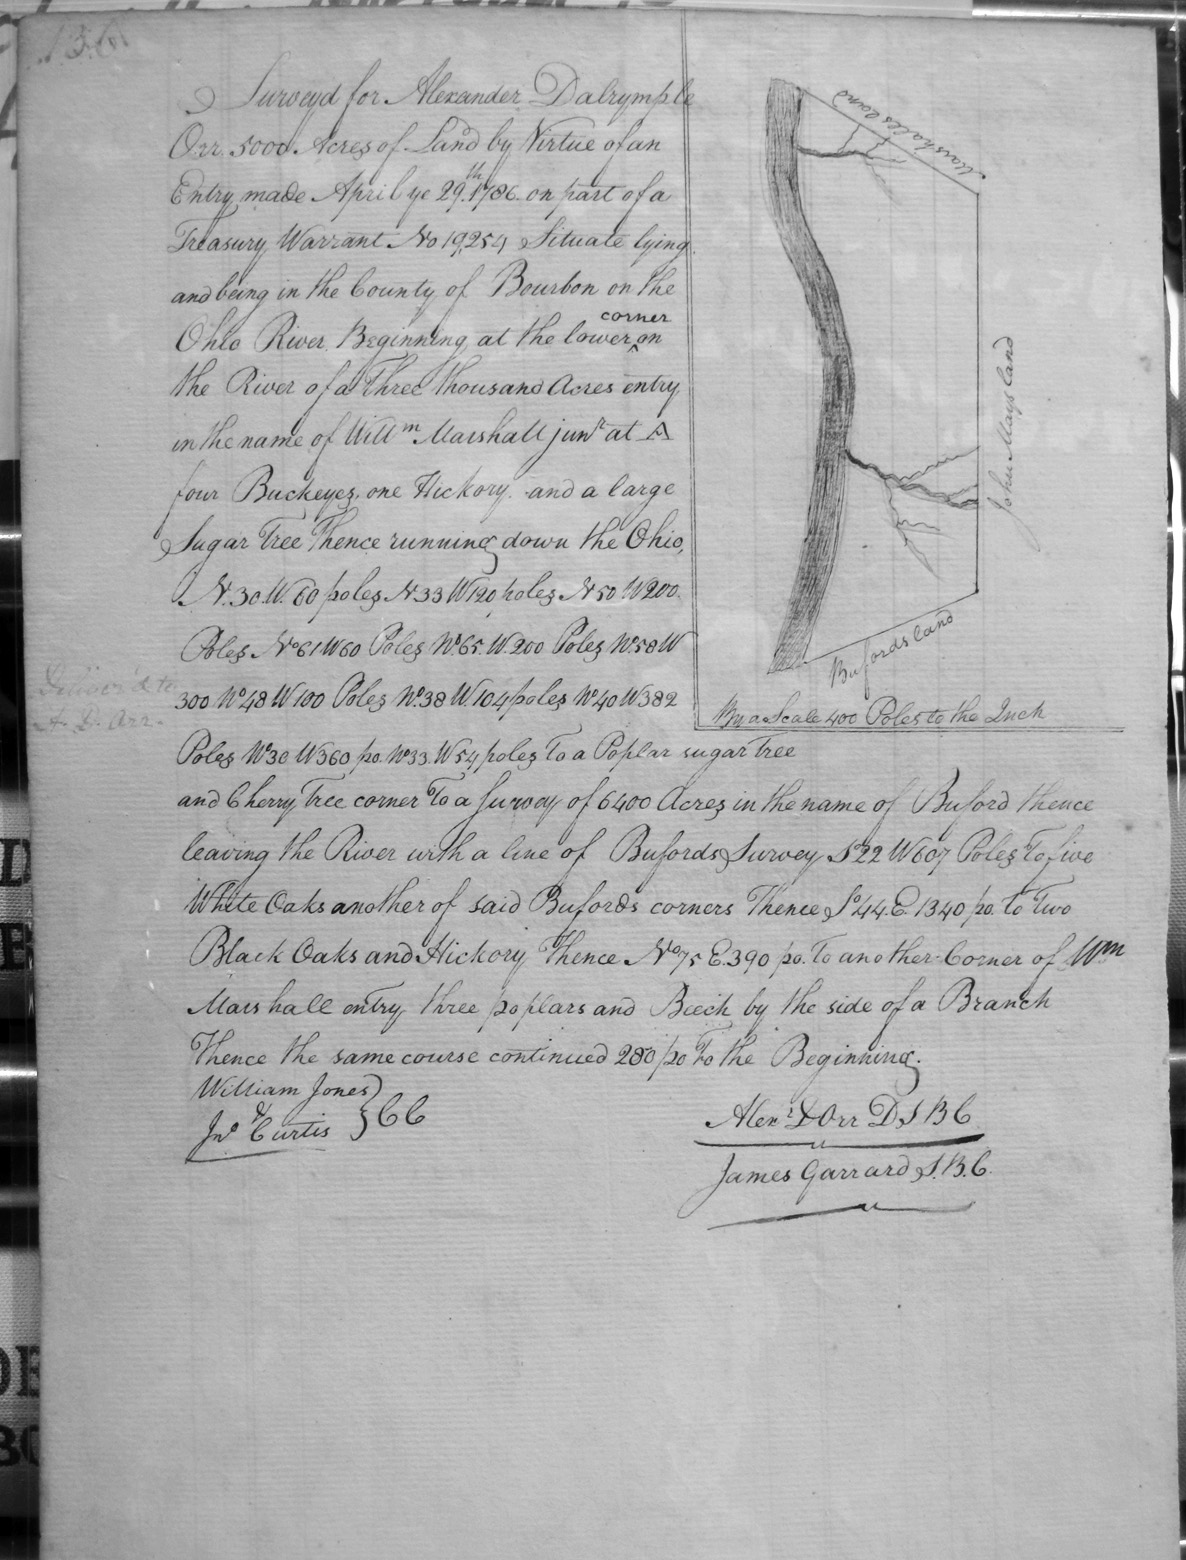 Surveyd for Alexander Dalrymple
Orr. 5000. Acres of Land by Virtue of an
Entry made April ye 29th. 1786. on part of a
Treasury Warrant No 19,254 Situate lying
and being in the County of Bourbon on the
Ohio River. Beginning at the lower corner on
the River of a Three thousand Acres entry
in the name of Willm Marshall junr at A
four Buckeyes, one Hickory and a large
Sugar Tree Thence running down the Ohio,
N. 30. W. 60 poles N 33 W 120 poles N 50 W 200.
Poles No 61 W 60 Poles No. 65. W. 200 Poles No. 58 W
300 No 48 W 100 Poles No. 38 W. 104 poles No 40 W 382
Poles No 30 W 360 po. No 33. W 54 poles to a Poplar sugar tree
and Cherry Tree corner to a Survey of 6400 Acres in the name of Buford thence
leaving the River with a line of Bufords Survey So 22 W 607 Poles to five
White Oaks another of said Bufords corners Thence So 44. E. 1340 po. to Two
Black Oaks and Hickory Thence No 75 E. 390 po. to another Corner of Wm
Marshall entry three poplars and Beech by the side of a Branch
Thence the same course continued 280 po to the Beginning.
William Jones
& Jno Curtis } CC
Alexr. D Orr D. S B C
James Garrard S. B. C.
Deliver'd to
A. D. Orr.
Marshalls land
John Mays land
Bufords land
By a Scale 400 Poles to the Inch